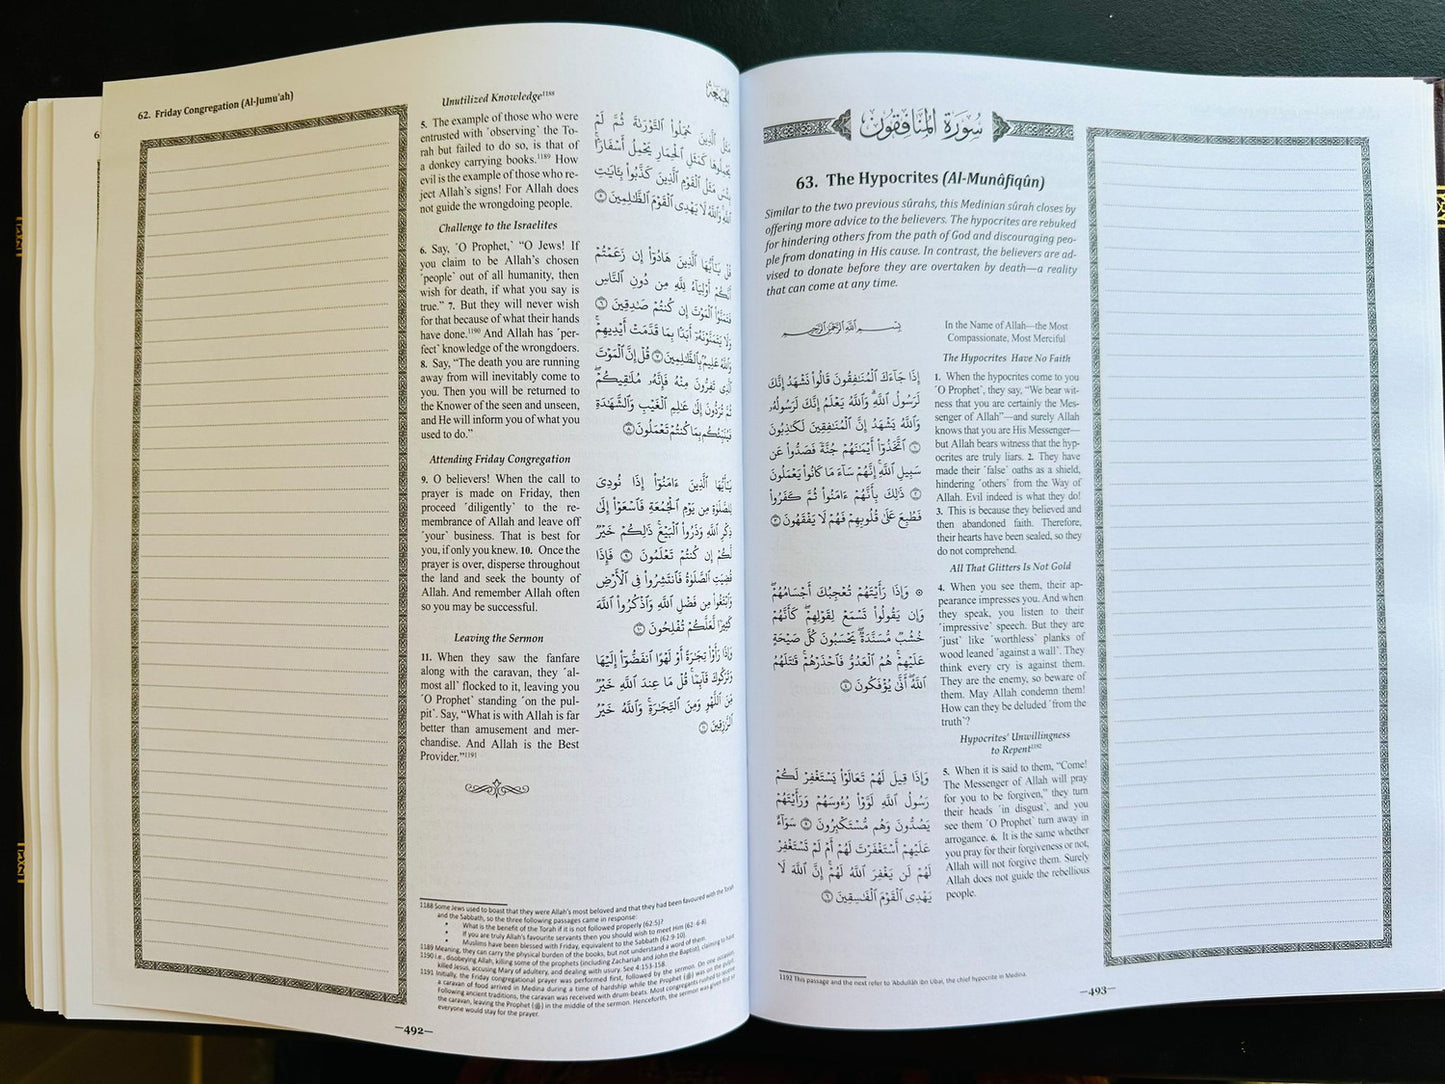 62. Friday Congregation (Al-Jumu'ah)
Unutilized Knowledge1188
5. The example of those who were
entrusted with ˹observing˺ the To-
rah but failed to do so, is that of
a donkey carrying books.1189 How
evil is the example of those who re-
ject Allah's signs! For Allah does
not guide the wrongdoing people.
Challenge to the Israelites
6. Say, ˹O Prophet,˺ “O Jews! If
you claim to be Allah's chosen
˹people˺ out of all humanity, then
wish for death, if what you say is
true.” 7. But they will never wish
for that because of what their hands
have done.1190 And Allah has ˹per-
fect˺ knowledge of the wrongdoers.
8. Say, “The death you are running
away from will inevitably come to
you. Then you will be returned to
the Knower of the seen and unseen,
and He will inform you of what you
used to do.”
Attending Friday Congregation
9. O believers! When the call to
prayer is made on Friday, then
proceed ˹diligently˺ to the re-
membrance of Allah and leave off
˹your˺ business. That is best for
you, if only you knew. 10. Once the
prayer is over, disperse throughout
the land and seek the bounty of
Allah. And remember Allah often
so you may be successful.
Leaving the Sermon
11. When they saw the fanfare
along with the caravan, they ˹al-
most all˺ flocked to it, leaving you
˹O Prophet˺ standing ˹on the pul-
pit˺. Say, “What is with Allah is far
better than amusement and mer-
chandise. And Allah is the Best
Provider.”1191
الجمعة
مَثَلُ ٱلَّذِينَ حُمِّلُوا۟ ٱلتَّوْرَىٰةَ ثُمَّ لَمْ
يَحْمِلُوهَا كَمَثَلِ ٱلْحِمَارِ يَحْمِلُ أَسْفَارًۢا
بِئْسَ مَثَلُ ٱلْقَوْمِ ٱلَّذِينَ كَذَّبُوا۟ بِـَٔايَـٰتِ
ٱللَّهِ وَٱللَّهُ لَا يَهْدِى ٱلْقَوْمَ ٱلظَّـٰلِمِينَ ٥
قُلْ يَـٰٓأَيُّهَا ٱلَّذِينَ هَادُوٓا۟ إِن زَعَمْتُمْ
أَنَّكُمْ أَوْلِيَآءُ لِلَّهِ مِن دُونِ ٱلنَّاسِ
فَتَمَنَّوُا۟ ٱلْمَوْتَ إِن كُنتُمْ صَـٰدِقِينَ ٦
وَلَا يَتَمَنَّوْنَهُۥٓ أَبَدًۢا بِمَا قَدَّمَتْ أَيْدِيهِمْ
وَٱللَّهُ عَلِيمٌۢ بِٱلظَّـٰلِمِينَ ٧ قُلْ إِنَّ ٱلْمَوْتَ
ٱلَّذِى تَفِرُّونَ مِنْهُ فَإِنَّهُۥ مُلَـٰقِيكُمْ
ثُمَّ تُرَدُّونَ إِلَىٰ عَـٰلِمِ ٱلْغَيْبِ وَٱلشَّهَـٰدَةِ
فَيُنَبِّئُكُم بِمَا كُنتُمْ تَعْمَلُونَ ٨
يَـٰٓأَيُّهَا ٱلَّذِينَ ءَامَنُوٓا۟ إِذَا نُودِىَ
لِلصَّلَوٰةِ مِن يَوْمِ ٱلْجُمُعَةِ فَٱسْعَوْا۟ إِلَىٰ
ذِكْرِ ٱللَّهِ وَذَرُوا۟ ٱلْبَيْعَ ذَٰلِكُمْ خَيْرٌ
لَّكُمْ إِن كُنتُمْ تَعْلَمُونَ ٩ فَإِذَا
قُضِيَتِ ٱلصَّلَوٰةُ فَٱنتَشِرُوا۟ فِى ٱلْأَرْضِ
وَٱبْتَغُوا۟ مِن فَضْلِ ٱللَّهِ وَٱذْكُرُوا۟ ٱللَّهَ
كَثِيرًا لَّعَلَّكُمْ تُفْلِحُونَ ١٠
وَإِذَا رَأَوْا۟ تِجَـٰرَةً أَوْ لَهْوًا ٱنفَضُّوٓا۟ إِلَيْهَا
وَتَرَكُوكَ قَآئِمًا قُلْ مَا عِندَ ٱللَّهِ خَيْرٌ
مِّنَ ٱللَّهْوِ وَمِنَ ٱلتِّجَـٰرَةِ وَٱللَّهُ خَيْرُ
ٱلرَّٰزِقِينَ ١١
1188 Some Jews used to boast that they were Allah's most beloved and that they had been favoured with the Torah
and the Sabbath, so the three following passages came in response:
• What is the benefit of the Torah if it is not followed properly (62:5)?
• If you are truly Allah's favourite servants then you should wish to meet Him (62:6-8)
• Muslims have been blessed with Friday, equivalent to the Sabbath (62:9-10).
1189 Meaning, they can carry the physical burden of the books, but not understand a word of them.
1190 i.e., disobeying Allah, killing some of the prophets (including Zachariah and John the Baptist), claiming to have
killed Jesus, accusing Mary of adultery, and dealing with usury. See 4:153-158.
1191 Initially, the Friday congregational prayer was performed first, followed by the sermon. On one occasion,
a caravan of food arrived in Medina during a time of hardship while the Prophet (ﷺ) was on the pulpit.
Following ancient traditions, the caravan was received with drum beats. Most congregants rushed to receive
the caravan, leaving the Prophet (ﷺ) in the middle of the sermon. Henceforth, the sermon was given first so
everyone would stay for the prayer.
—492—
سُورَةُ المُنَافِقُون
63. The Hypocrites (Al-Munâfiqûn)
Similar to the two previous sûrahs, this Medinian sûrah closes by
offering more advice to the believers. The hypocrites are rebuked
for hindering others from the path of God and discouraging peo-
ple from donating in His cause. In contrast, the believers are ad-
vised to donate before they are overtaken by death—a reality
that can come at any time.
بِسْمِ ٱللَّهِ ٱلرَّحْمَـٰنِ ٱلرَّحِيمِ
إِذَا جَآءَكَ ٱلْمُنَـٰفِقُونَ قَالُوا۟ نَشْهَدُ إِنَّكَ
لَرَسُولُ ٱللَّهِ وَٱللَّهُ يَعْلَمُ إِنَّكَ لَرَسُولُهُۥ
وَٱللَّهُ يَشْهَدُ إِنَّ ٱلْمُنَـٰفِقِينَ لَكَـٰذِبُونَ
١ ٱتَّخَذُوٓا۟ أَيْمَـٰنَهُمْ جُنَّةً فَصَدُّوا۟ عَن
سَبِيلِ ٱللَّهِ إِنَّهُمْ سَآءَ مَا كَانُوا۟ يَعْمَلُونَ
٢ ذَٰلِكَ بِأَنَّهُمْ ءَامَنُوا۟ ثُمَّ كَفَرُوا۟
فَطُبِعَ عَلَىٰ قُلُوبِهِمْ فَهُمْ لَا يَفْقَهُونَ ٣
۞ وَإِذَا رَأَيْتَهُمْ تُعْجِبُكَ أَجْسَامُهُمْ
وَإِن يَقُولُوا۟ تَسْمَعْ لِقَوْلِهِمْ كَأَنَّهُمْ
خُشُبٌ مُّسَنَّدَةٌ يَحْسَبُونَ كُلَّ صَيْحَةٍ
عَلَيْهِمْ هُمُ ٱلْعَدُوُّ فَٱحْذَرْهُمْ قَـٰتَلَهُمُ
ٱللَّهُ أَنَّىٰ يُؤْفَكُونَ ٤
وَإِذَا قِيلَ لَهُمْ تَعَالَوْا۟ يَسْتَغْفِرْ لَكُمْ
رَسُولُ ٱللَّهِ لَوَّوْا۟ رُءُوسَهُمْ وَرَأَيْتَهُمْ
يَصُدُّونَ وَهُم مُّسْتَكْبِرُونَ ٥ سَوَآءٌ
عَلَيْهِمْ أَسْتَغْفَرْتَ لَهُمْ أَمْ لَمْ تَسْتَغْفِرْ
لَهُمْ لَن يَغْفِرَ ٱللَّهُ لَهُمْ إِنَّ ٱللَّهَ لَا
يَهْدِى ٱلْقَوْمَ ٱلْفَـٰسِقِينَ ٦
In the Name of Allah—the Most
Compassionate, Most Merciful
The Hypocrites Have No Faith
1. When the hypocrites come to you
˹O Prophet˺, they say, “We bear wit-
ness that you are certainly the Mes-
senger of Allah”—and surely Allah
knows that you are His Messenger—
but Allah bears witness that the hyp-
ocrites are truly liars. 2. They have
made their ˹false˺ oaths as a shield,
hindering ˹others˺ from the Way of
Allah. Evil indeed is what they do!
3. This is because they believed and
then abandoned faith. Therefore,
their hearts have been sealed, so they
do not comprehend.
All That Glitters Is Not Gold
4. When you see them, their ap-
pearance impresses you. And when
they speak, you listen to their
˹impressive˺ speech. But they are
˹just˺ like ˹worthless˺ planks of
wood leaned ˹against a wall˺. They
think every cry is against them.
They are the enemy, so beware of
them. May Allah condemn them!
How can they be deluded ˹from the
truth˺?
Hypocrites' Unwillingness
to Repent1192
5. When it is said to them, “Come!
The Messenger of Allah will pray
for you to be forgiven,” they turn
their heads ˹in disgust˺, and you
see them ˹O Prophet˺ turn away in
arrogance. 6. It is the same whether
you pray for their forgiveness or not,
Allah will not forgive them. Surely
Allah does not guide the rebellious
people.
1192 This passage and the next refer to 'Abdullâh ibn Ubai, the chief hypocrite in Medina.
—493—